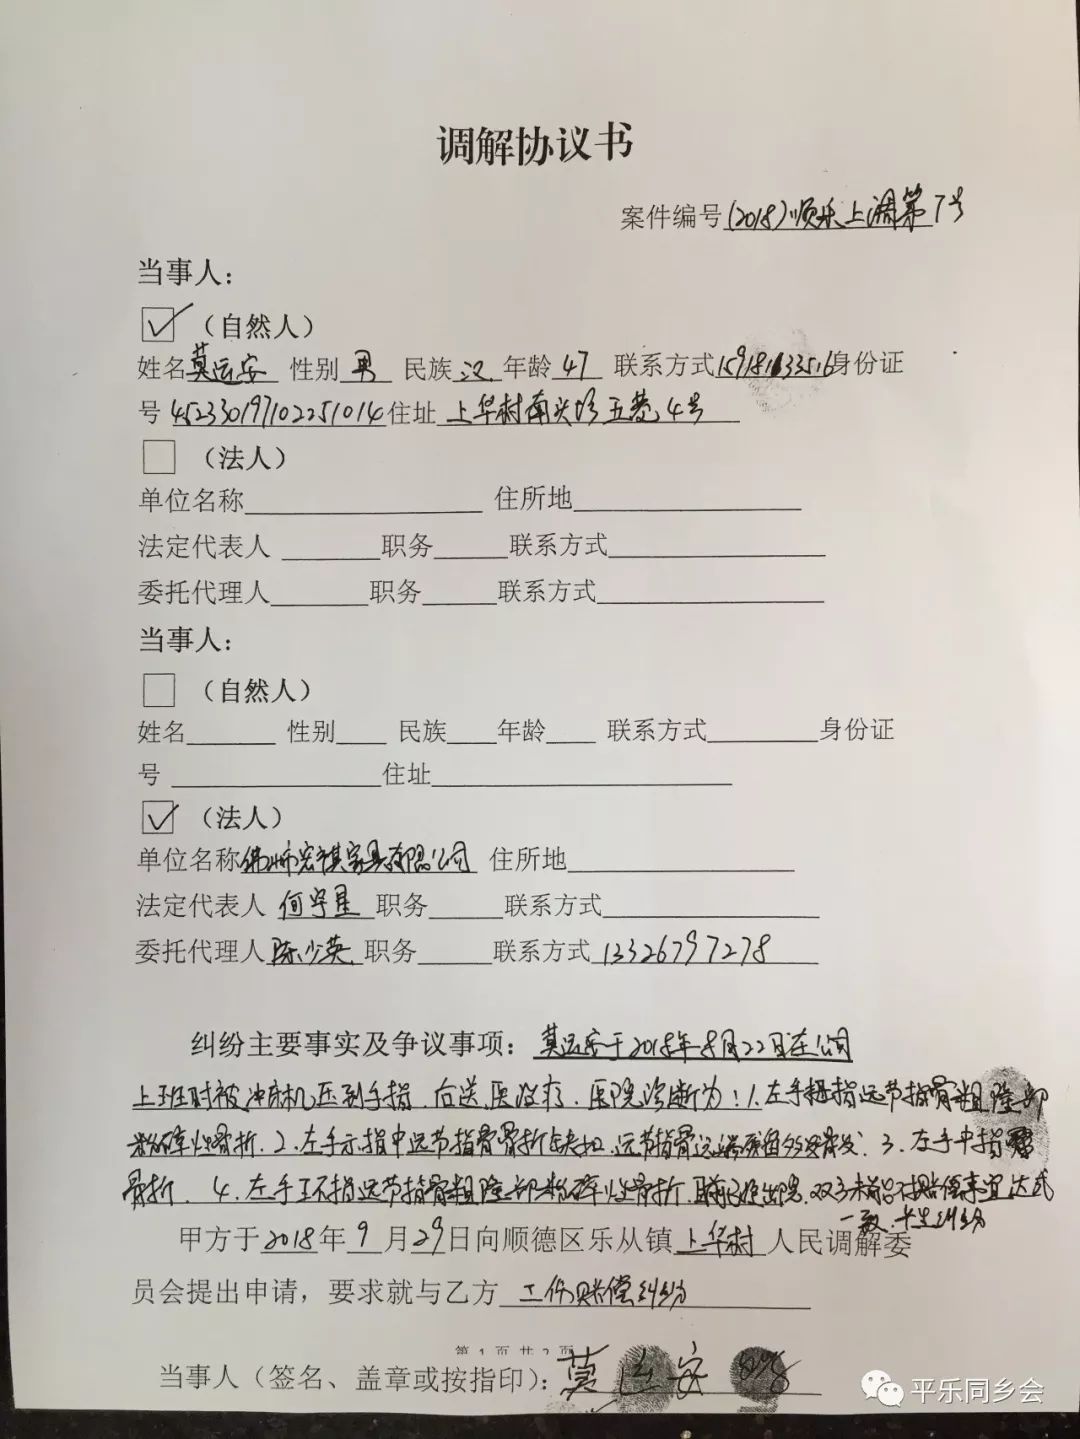 调解协议书
案件编号(2018)顺乐上调第7号
当事人：
（自然人）
姓名莫运安 性别 男 民族 汉 年龄 47 联系方式15918133516身份证
号 452330197102251014 住址 上华村南兴坊五巷4号
（法人）
单位名称 住所地
法定代表人 职务 联系方式
委托代理人 职务 联系方式
当事人：
（自然人）
姓名 性别 民族 年龄 联系方式 身份证
号 住址
（法人）
单位名称佛山市宏祺家具有限公司 住所地
法定代表人 何守星 职务 联系方式
委托代理人陈少英 职务 联系方式 13326797278
纠纷主要事实及争议事项：莫运安于2018年8月22日在公司
上班时被冲床机压到手指，后送医治疗，医院诊断为：1.左手拇指远节指骨粗隆部
粉碎性骨折．2.左手示指中远节指骨骨折缺损，远节指骨远端残留 3.左手中指
骨折．4.左手环指远节指骨粗隆部粉碎性骨折．目前已经出院，双方未能就赔偿事宜达成
一致，发生纠纷
甲方于2018年9月29日向顺德区乐从镇上华村人民调解委
员会提出申请，要求就与乙方 工伤赔偿纠纷
第 1 页 共 2 页
当事人（签名、盖章或按指印）：莫运安
平乐同乡会